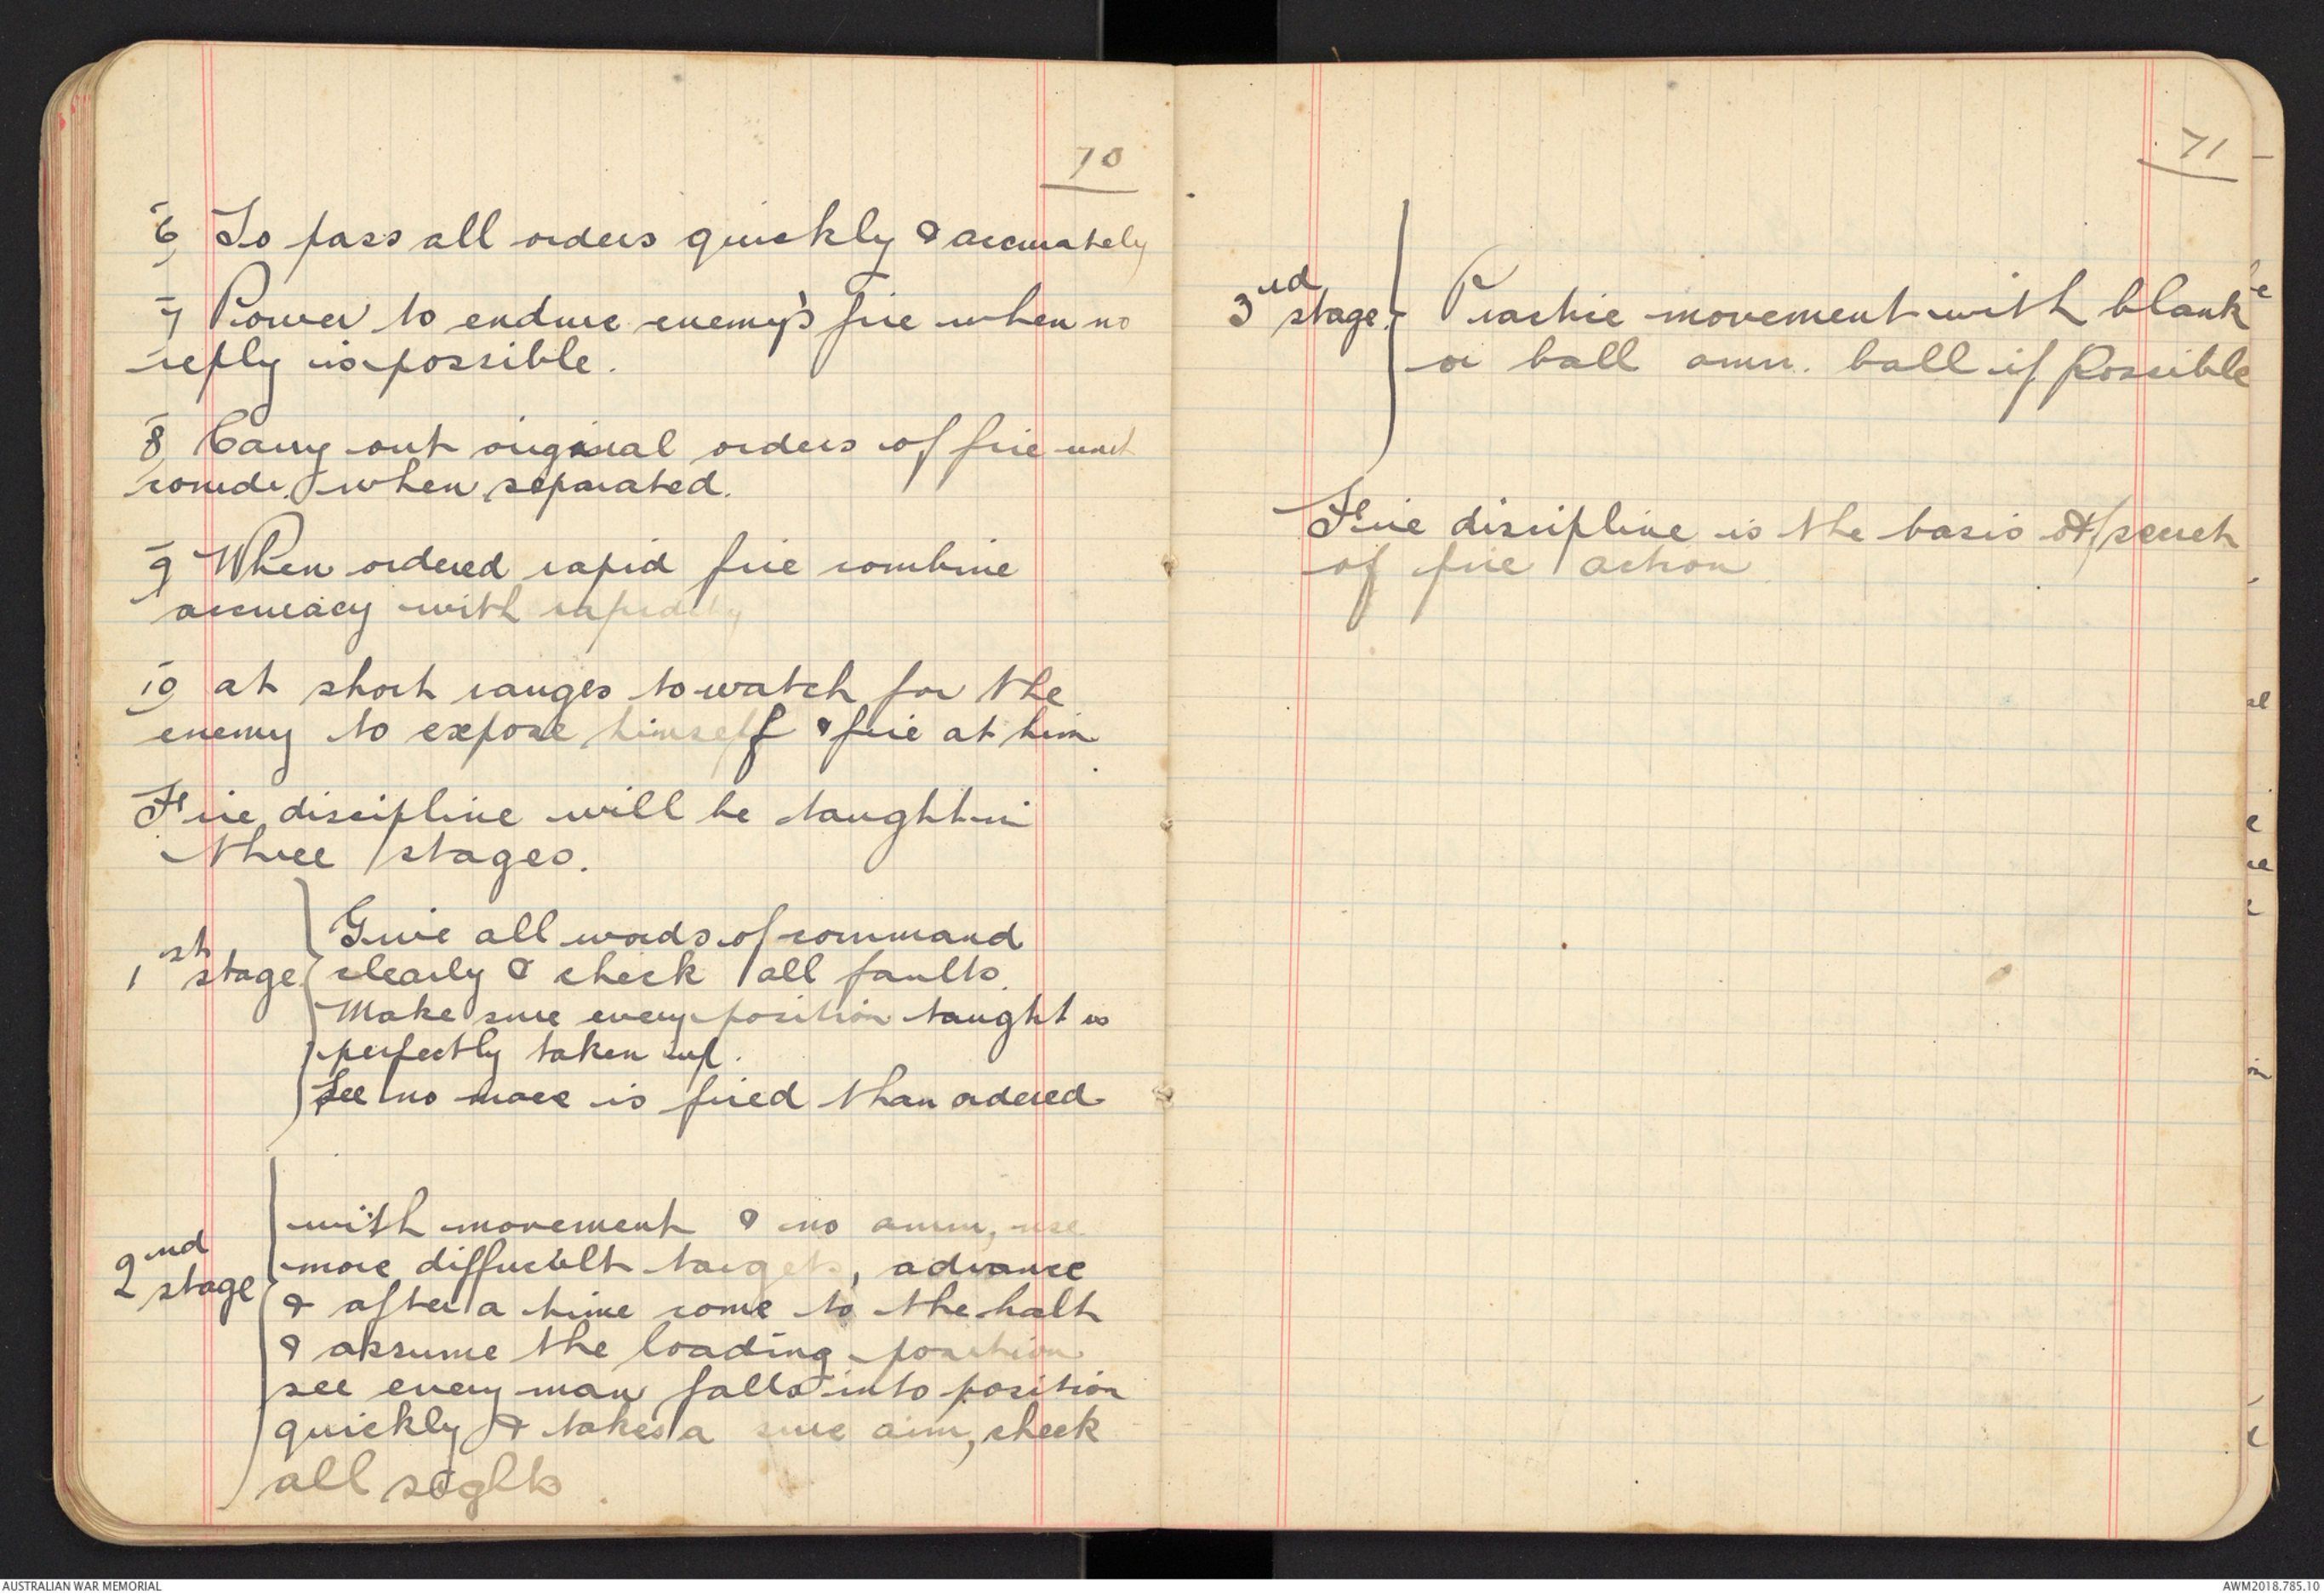 70
6, To pass all orders quickly & accurately
7, Power to endure enemy's fire when no
reply is possible.
8, Carry out original orders of fire unit
comdr. when separated.
9, When ordered rapid fire combine
accuracy with rapidity
10, at short ranges to watch for the
enemy to expose himself & fire at him
Fire discipline will be taught in
three stages.
1st stage. Give all words of command
clearly & check all faults.
Make sure every position taught is
perfectly taken up.
See no more is fired than ordered
2nd stage with movement & no amm, use
more difficult targets, advance
& after a time come to the halt
& assume the loading position
see every man falls into position
quickly & takes a sure aim, check
all sights.
71
3rd stage. Practice movement with blank
or ball amn. ball if possible
Fire discipline is the basis & secret
of fire action
AUSTRALIAN WAR MEMORIAL
AWM2018.785.10